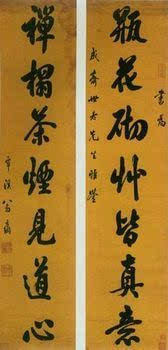 書為
瓶花砌艸皆真意
齋世老先生雅鑒
禪榻茶煙見道心
覃溪翁方綱